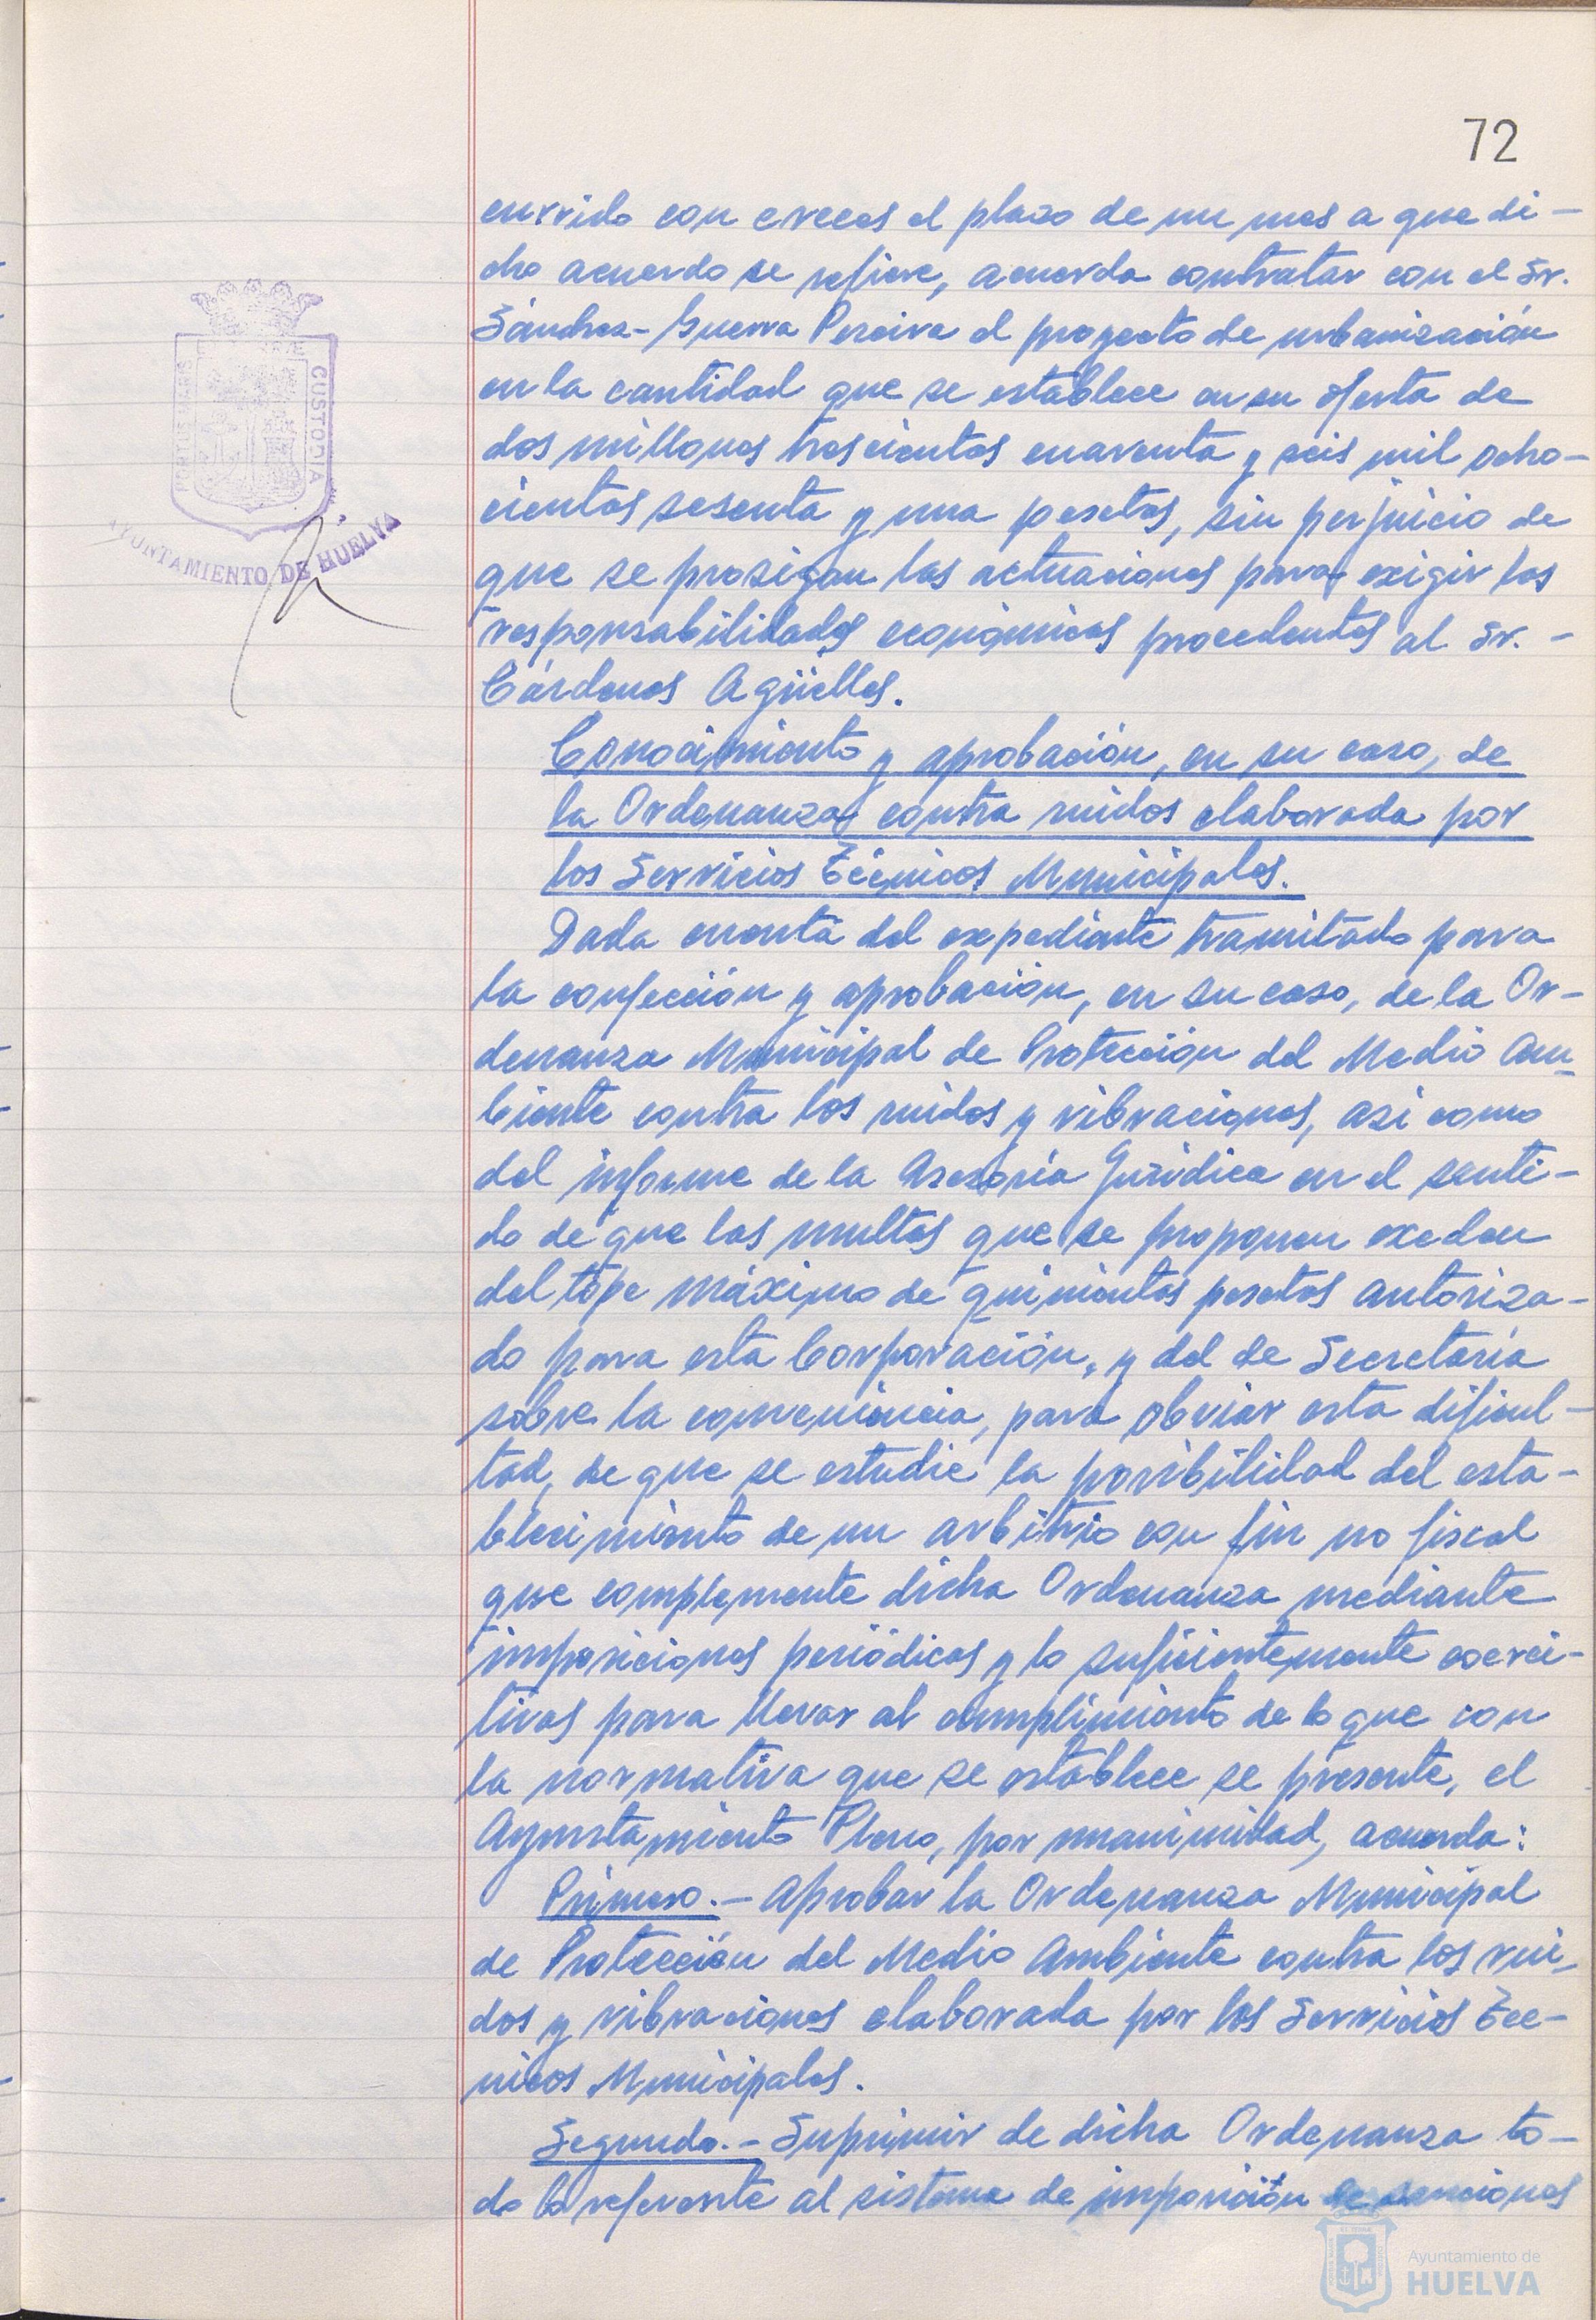 72
currido con creces el plazo de un mes a que di-
cho acuerdo se refiere, acuerda contratar con el Sr.
Sánchez-Guerra Pereira el proyecto de urbanización
en la cantidad que se establece en su oferta de
dos millones trescientos cuarenta y seis mil ocho-
cientas sesenta y una pesetas, sin perjuicio de
que se prosigan las actuaciones para exigir las
responsabilidades económicas procedentes al Sr. -
Cárdenas Agüelles.
Conocimiento y aprobación, en su caso, de
la Ordenanza contra ruidos elaborada por
los Servicios Técnicos Municipales.
Dada cuenta del expediente tramitado para
la confección y aprobación, en su caso, de la Or-
denanza Municipal de Protección del Medio Am-
biente contra los ruidos y vibraciones, asi como
del informe de la Asesoría Jurídica en el senti-
do de que las multas que se proponen exeden
del tope máximo de quinientas pesetas autoriza-
do para esta Corporación, y del de Secretaría
sobre la conveniencia, para obviar esta dificul-
tad, de que se estudie la posibilidad del esta-
blecimiento de un arbitrio con fin no fiscal
que complemente dicha Ordenanza mediante
imposiciones periódicas y lo suficientemente coerci-
tivas para llevar al cumplimiento de lo que con
la normativa que se establece se presente, el
Ayuntamiento Pleno, por unanimidad, acuerda:
Primero.- Aprobar la Ordenanza Municipal
de Protección del Medio Ambiente contra los rui-
dos y vibraciones elaborada por los Servicios Téc-
nicos Municipales.
Segundo.- Suprimir de dicha Ordenanza to-
do lo referente al sistema de imposición de sanciones
PORTUS MARIS
CUSTODIA
AYUNTAMIENTO DE HUELVA
Ayuntamiento de
HUELVA